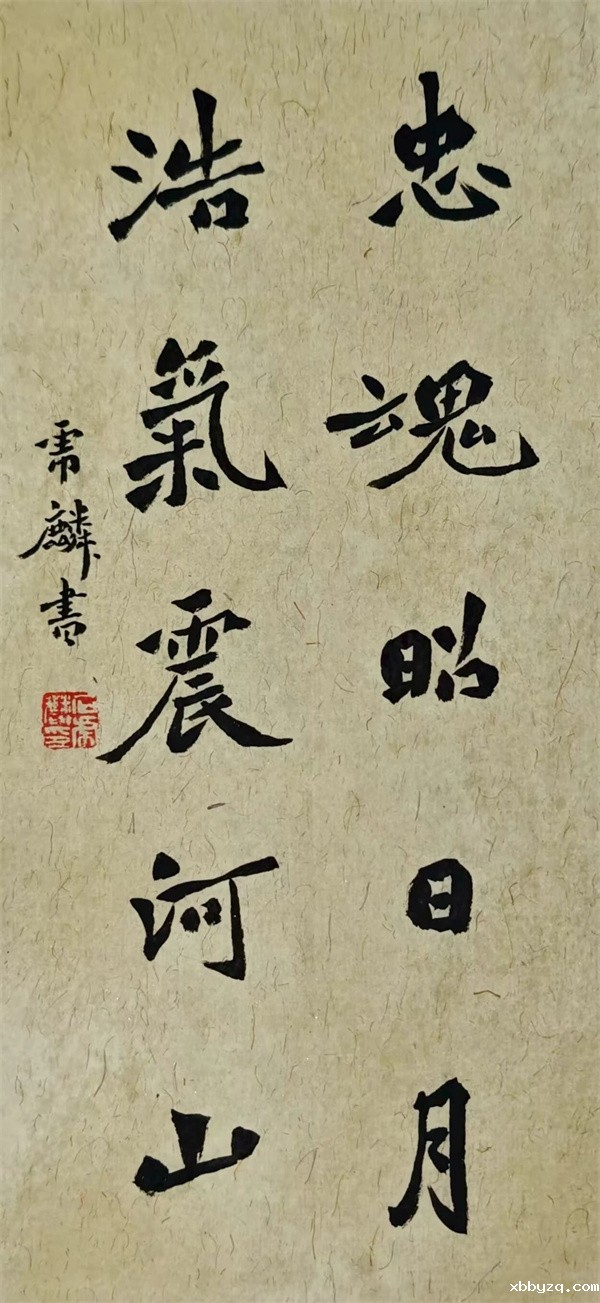 忠魂昭日月
浩氣震河山
霈麟書
xbbyzq.com